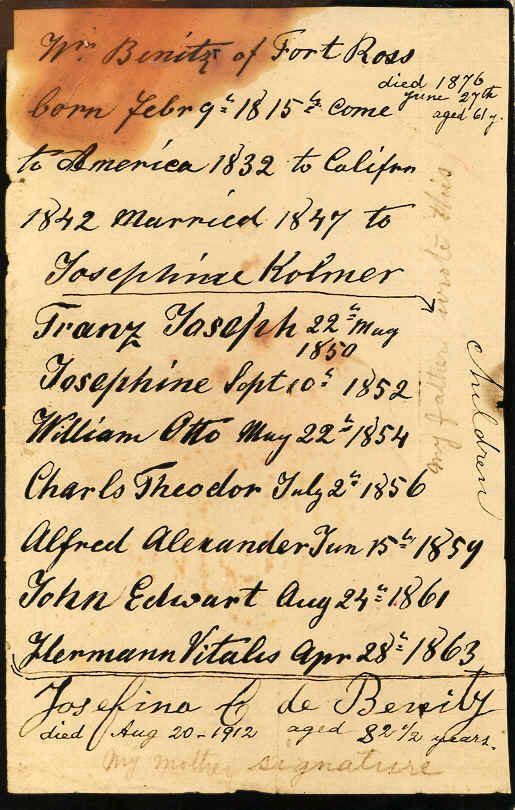 Wm Benitz of Fort Ross
died 1876
June 27th
aged 61 y.
born Febr 9th 1815 come
to America 1832 to Califrn
1842 Married 1847 to
Josephine Kolmer
my father wrote this
Children
Franz Joseph 22th May
1850
Josephine Sept 10th 1852
William Otto May 22th 1854
Charls Theodor July 2th 1856
Alfred Alexander Jun 15th 1859
John Edwart Aug 24th 1861
Hermann Vitalis Apr 28th 1863
Josefina C de Benitz
died Aug 20 - 1912 aged 82 1/2 years.
My mother signature